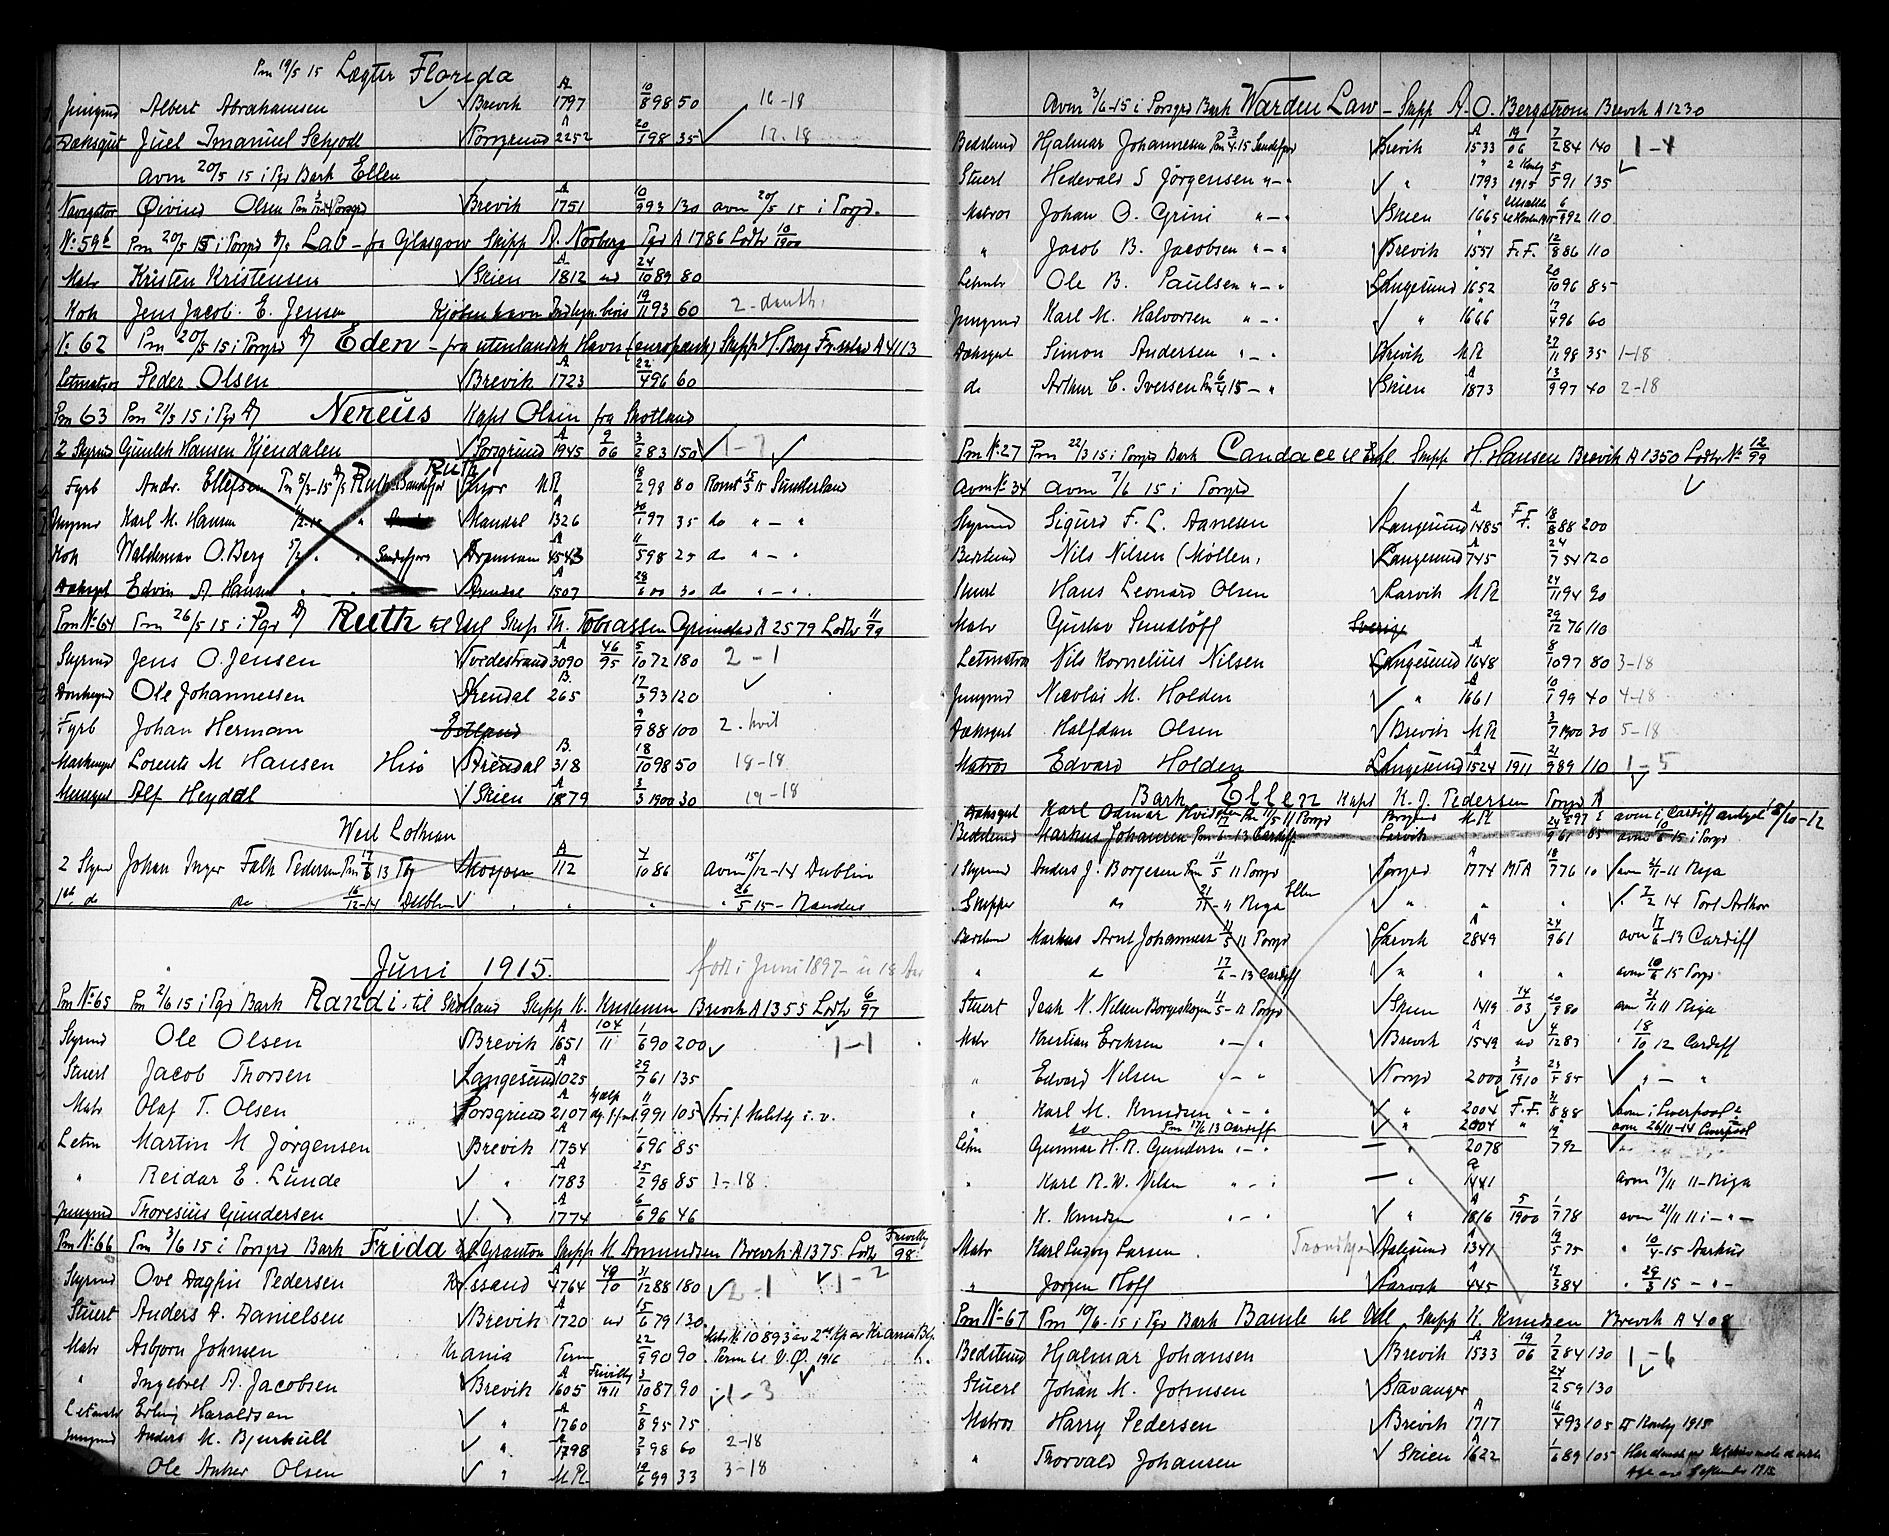 Pm 19/5 15 Lægter Florida
Jungmd Albert Abrahamsen Brevik A 1797 10/8 98 50 16-18
Dæksgut Juel Imanuel Schjoll Porsgrund A 2252 20/1 98 35 17-18
Avm 20/5 15 i Pgr Bark Ellen
Navigatør Øivind Olsen Brevik A 1751 10/9 93 130 avm 20/5 15 i Porgr.
No 59b Pm 20/5 15 i Porgrd D/s Lab - fra Glasgow Skipp A. Norberg Pgr A 1786 Lodtr 10/1900
Matr Kristen Kristensen Skien A 1812 ud 24/10 89 80
Kok Jens Jacob E. Jensen Kjøbenhavn 19/11 93 60 2-
No 62 Pm 20/5 15 i Porgrd D/ Eden - fra utenlandsk Havn (europæisk) Skipp H. Berg A 4113
Letmatros Peder Olsen Brevik A 1723 22/4 96 60
Pm 63 Pm 21/5 15 i Pgr D/ Nereus Kapt Olsen fra Skotland
2 Styrmd Gunleik Hansen Kjendalen Porsgrund A 1945 9/06 3/2 83 150 1-7
Fyrb Andr. Ellefsen Pm 5/3-15 D/S Ruth Sandefjor Risør MR 18/2 98 80 Romt 15/3 15 Sunderland
Jungmd Karl M. Hansen Mandal A 1326 1 97 35 do " - "
Kok Waldemar O. Berg 5/3 " " Sandefjor Drammen A 4543 11/5 98 25 do " - "
Dæksgut Edvin A. Hansen " - " Arendal A 1507 28/6 00 30 do " - "
Pm No 64 Pm 26/5 15 i Pgr D/ Ruth til Usl Skip Th. Tobiassen Grimstad A 2579 Lodtr 11/99
Styrmd Jens O. Jensen Tvedestrand A 3090 46/95 5/10 72 180 2-1
Donkymd Ole Johannessen Arendal B. 265 17/3 93 120
Fyrb Johan Herman Estland 9/9 88 100 2. hvit
Maskingut Lorents M Hansen Hisø Arendal B. 318 18/10 98 50 18-18
Messegut Alf Heyddl Skien A 1879 3/3 1900 30 19-18
West Lothian
2 Styrmd Johan Inger Falk Pedersen Pm 17/6 13 Pgr Mosjøen A 112 4/10 86 avm 15/12-14 Dublin
1ste do do 16/12-14 Dublin " " " " 26/5 15 - Randers
Juni 1915. født i Juni 1897 - u 18 Aar
Pm No 65 Pm 2/6 15 i Pgr Bark Randi til Skotland Skipp K. Knudsen Brevik A 1355 Lodtr 6/97
Styrmd Ole Olsen Brevik A 1651 104/11 1/6 90 200 1-1
Stuert Jacob Thorsen Langesund 1025 29/7 61 135
Matr Olaf T. Olsen Porsgrund A 2107 11/9 91 105
Letm Martin M Jørgensen Brevik A 1754 1/6 96 85
" Reidar E. Lunde " A 1783 25/2 98 85 1-18
Jungmd Thoresius Gundersen " A 1774 6/6 96 46
Pm No 66 Pm 3/6 15 i Porgrd Bark Frida til Granton Skipp K Amundsen Brevik A 1375 Lodtr Frivillig 98
Styrmd Ove Dagfin Pedersen Rissand A 4764 49/10 31/12 88 180 2-1 1-2
Stuert Anders A. Danielsen Brevik A 1720 ud 15/6 79 130
Matr Asbjørn Johnsen Krania Term 22/9 90 90 Matr N 10893 av 2den Kp av Krania Bly. Perm til V.Ø. 1916
" Ingebret A. Jacobsen Brevik A 1605 Frivillig 1911 3/10 87 90 1-3
Letmatr Erling Haraldsen " A 1760 5/8 95 75
Jungmd Anders M. Bjerkull " A 1798 2/3 98 60 2-18
Ole Anker Olsen " M.R. 19/6 99 33 3-18
Avm 3/6-15 i Porsgrd Bark Warden Law - Skipp A. O. Bergstrøm Brevik A 1230
Bedstmd Hjalmar Johannesen Pm 3/4-15 Sandefjor Brevik A 1533 19/06 7/2 84 140 1-4
Stuert Hedevald S Jørgensen " - " " 1793 1915 5/5 91 135
Matros Johan O. Grini " - " Skien 1665 6/8 92 110
" Jacob B. Jacobsen " - " Brevik 1551 F.F. 12/8 86 110
Letmtr Ole B. Paulsen " - " Langesund 1652 20/10 96 85
Jungmd Karl M. Halvorsen " - " " 1666 17/4 96 60
Dæksgut Simon Andersen " - " Brevik M R 27/11 98 35 1-18
do Arthur C. Iversen Pm 6/4 15 - " Skien A 1873 13/9 97 40 2-18
Pm No 27 Pm 22/3 15 i Porgrd Bark Candace til Usl. Skipp H. Hansen Brevik A 1350 Lodtr No 12/99
Avm No 34 Avm 7/6 15 i Porgrd
Styrmd Sigurd F. L. Aanesen Langesund A 1485 F.F. 18/8 88 200
Bedstmd Nils Nilsen (Møllen) Langesund A 745 24/7 54 120
Stuert Hans Leonard Olsen Larvik M R 24/11 94 90
Matr Gustav Sundlöff Sverige 29/12 76 110
Letmtros Nils Kornelius Nilsen Langesund A 1648 8/10 97 80 3-18
Jungmd Nicolai M. Holden " A 1661 10/1 99 40 4-18
Dæksgut Halfdan Olsen Brevik M R 3/7 1900 30 5-18
Matros Edvard Holden Langesund A 1524 1911 21/9 89 110 1-5
Bark Ellen Kapt K. J. Pedersen Porgrd A
Dæksgut Karl Oamar Hvid Pm 11/5 11 Porgrd Porgrund M.R. 24/5 97 avm i Cardiff 18/10-12
Bedstmd Markus Johansen Pm 17/6-13 Cardiff Larvik 9 61 85 avm 10/6 15 i Porgr
1 Styrmd Anders J. Borgesen Pm 11/5 11 Porgrd Porgrd A 1774 MTA 18/7 76 10 avm 21/11-11 Riga
Skipper do 21/11-11 Riga Ellen " " " " 7/2 14 Port Arthur
Bedstm Markus Arnt Johannesen 11/5 11 Porgrd Larvik A 2849 24/9 61 avm 17/6-13 Cardiff
" do 17/6-13 Cardiff " " " avm 10/6 15 Porgr
Stuert Isak N. Nilsen Borgeskogen 11/5-11 Porgrd Skien 1419 14/03 20/9 80 avm 21/11 11 Riga
Matr Kristian Eriksen " - " Brevik A 1549 ud 4/12 83 " 18/10 12 Cardiff
" Edvard Nilsen " - " Porgrd 2000 3/1910 23/5 85 " - "
" Karl M. Knudsen " - " " 2004 F.F. 31/8 88 avm i Liverpool
" do Pm 17/6 13 Cardiff " 2004 " avm 26/11-14 Liverpool
Letm Gunnar H. R. Gundersen " - " " 2078 19/7 92
" Karl R. W. Nilsen " - " " A 1441 avm 13/11 11 - Riga
K. Knudsen " - " " A 1816 5/1900 1/7 78 avm 21/11 11 i - " -
Matr Karl Ludvig Larsen Trondhjem Aalesund A 1341 19/5 75 " 10/4-15 Aarhus
" Jørgen Hoff Larvik A 445 12/3 84 " 29/3 15 - " -
Pm No 67 Pm 10/6-15 i Pgr Bark Bamle til Usl Skipp K. Knudsen Brevik A 408
Bedstmd Hjalmar Johansen Brevik A 1533 19/06 7/2 84 130 1-6
Stuert Johan M. Johnsen Stavanger 24/2 59 130
Matros Harry Pedersen Brevik A 1717 16/4 93 105 1915
" Thorvald Johansen Skien A 1622 1/6 89 105 September 1915